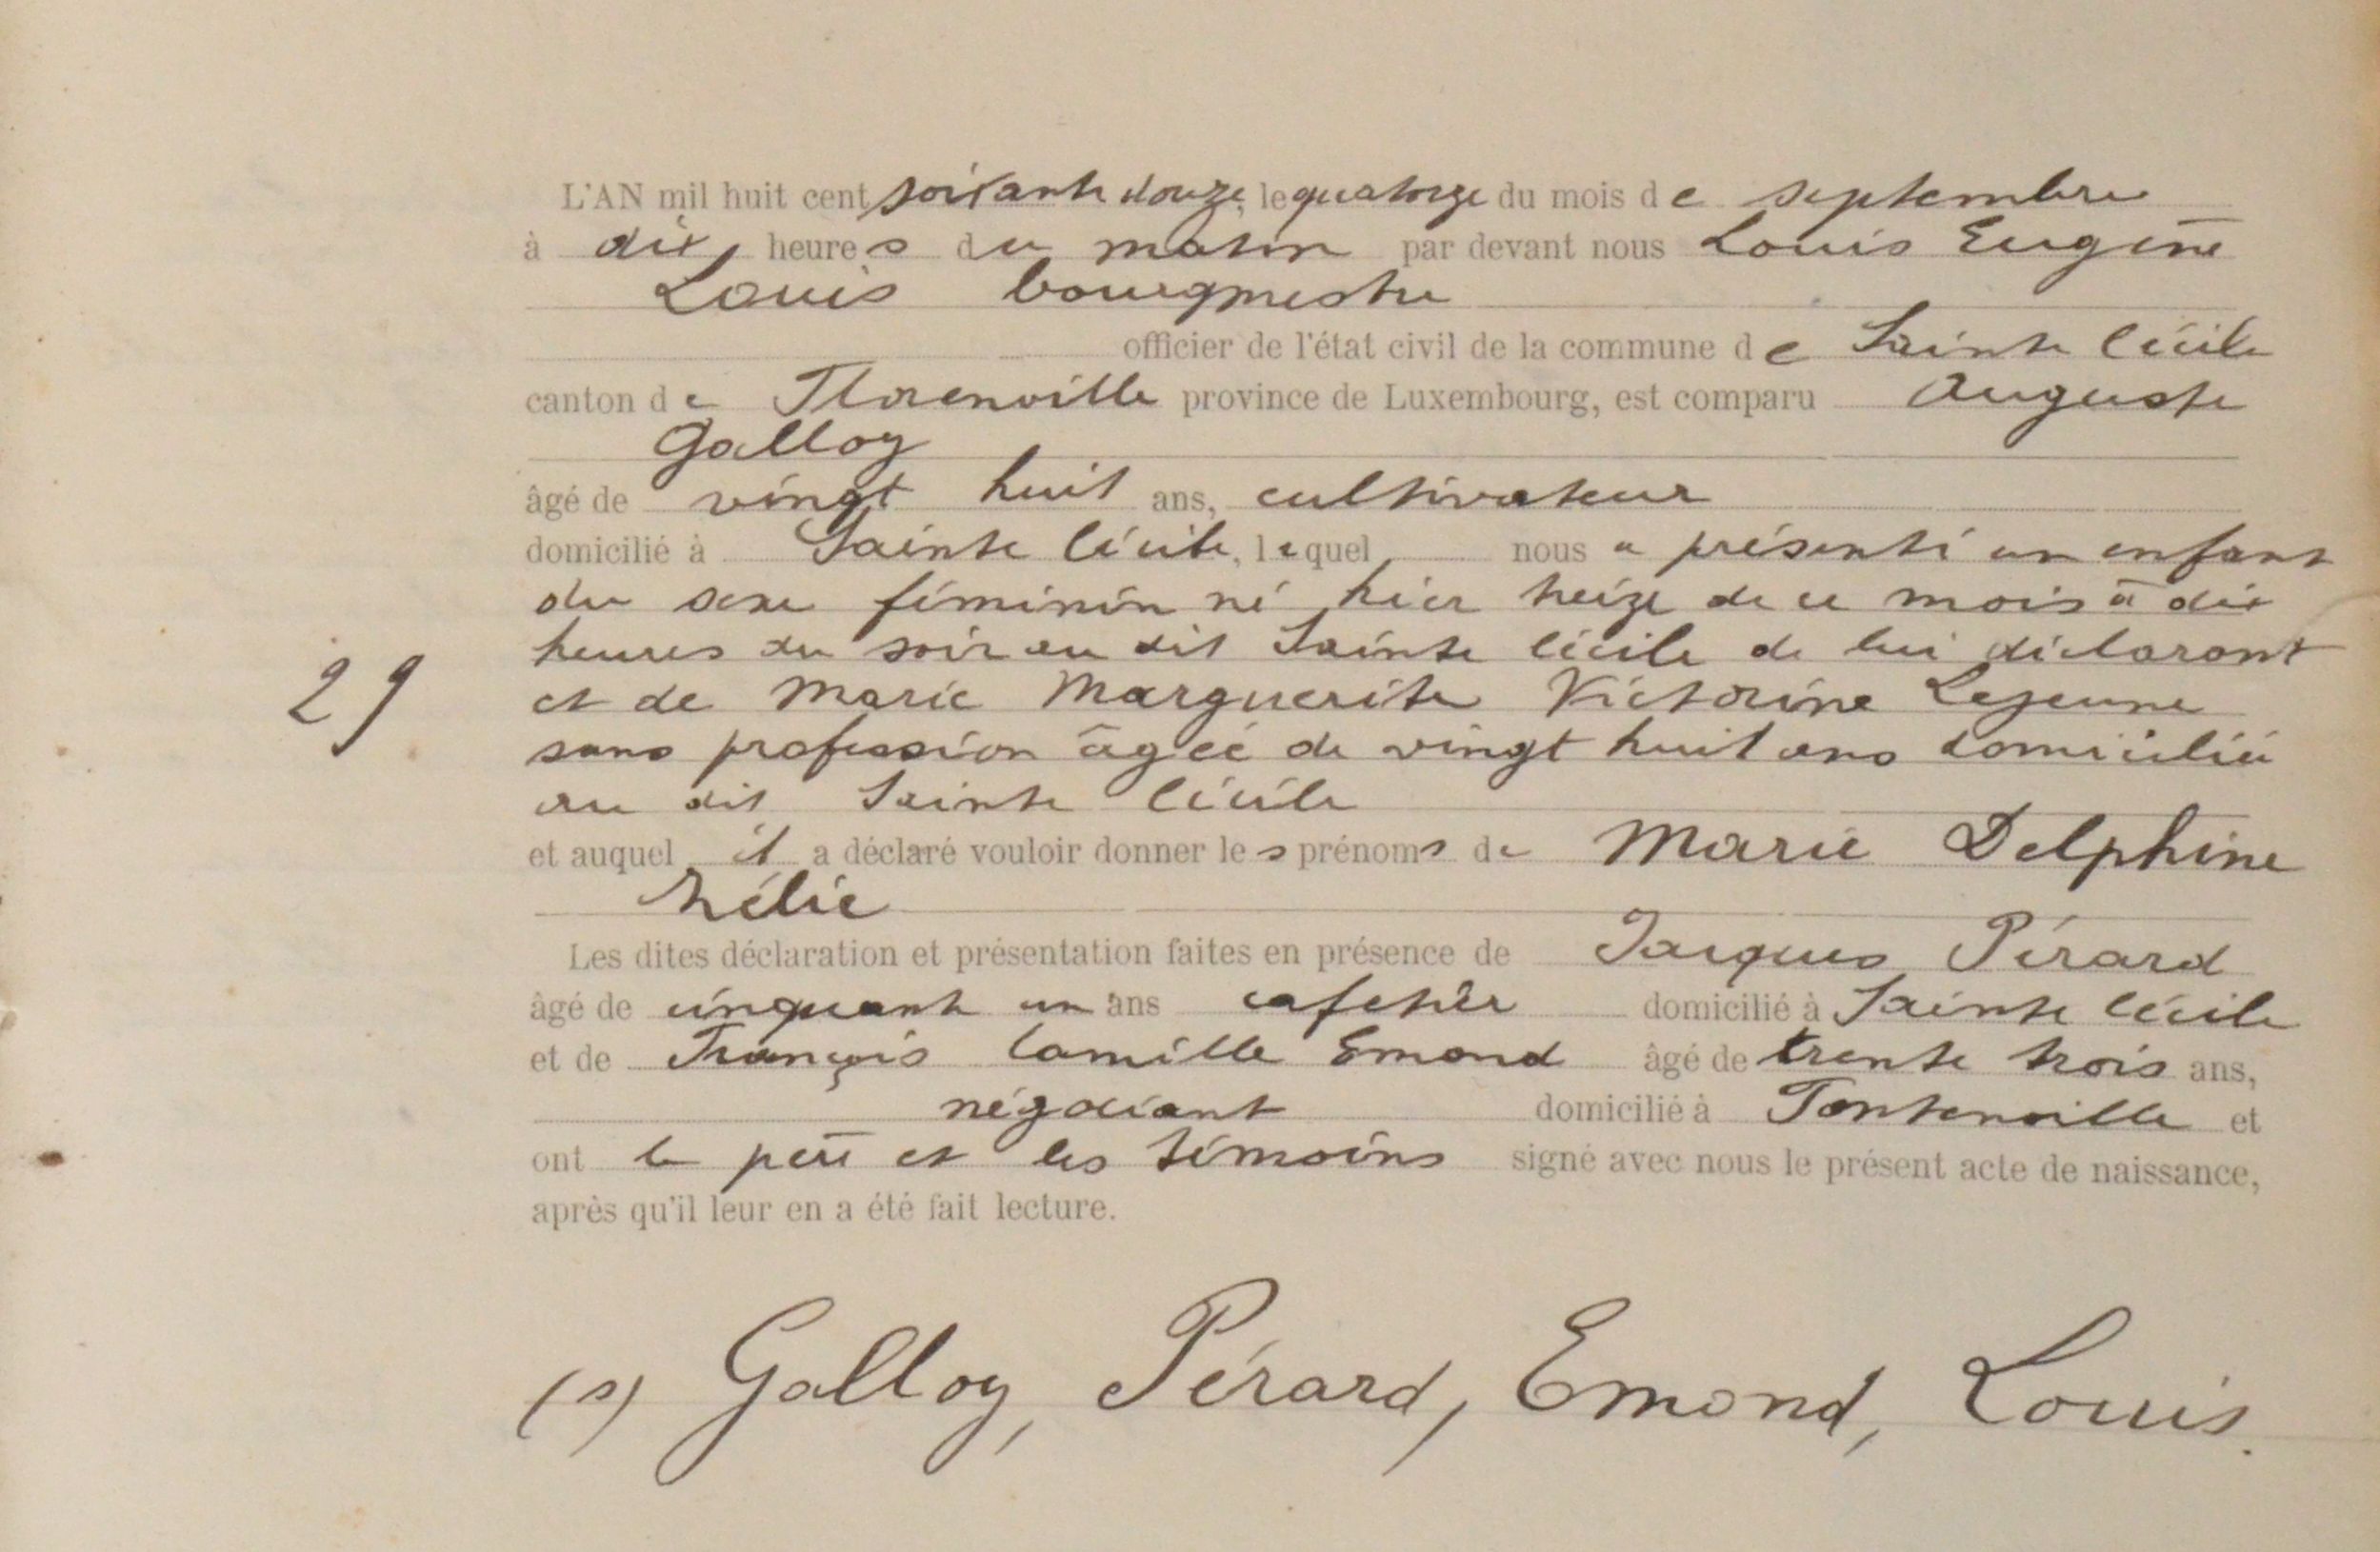 L'AN mil huit cent soixante douze, le quatorze du mois de septembre
à dix heures du matin par devant nous Louis Eugène
Louis bourgmestre
officier de l'état civil de la commune de Sainte Cécile
canton de Florenville province de Luxembourg, est comparu Auguste
Galloy
âgé de vingt huit ans, cultivateur
domicilié à Sainte Cécile, lequel nous a présenté un enfant
du sexe féminin né hier treize de ce mois à dix
heures du soir au dit Sainte Cécile de lui déclarant
29 et de Marie Marguerite Victorine Lejeune
sans profession âgée de vingt huit ans domiciliée
au dit Sainte Cécile
et auquel il a déclaré vouloir donner les prénoms de Marie Delphine
Les dites déclaration et présentation faites en présence de Jacques Pérard
âgé de cinquante un ans cafetier domicilié à Sainte Cécile
et de François Camille Emond âgé de trente trois ans,
négociant domicilié à Fontenoille et
ont le père et les témoins signé avec nous le présent acte de naissance,
après qu'il leur en a été fait lecture.
(s) Galloy, Pérard, Emond, Louis.